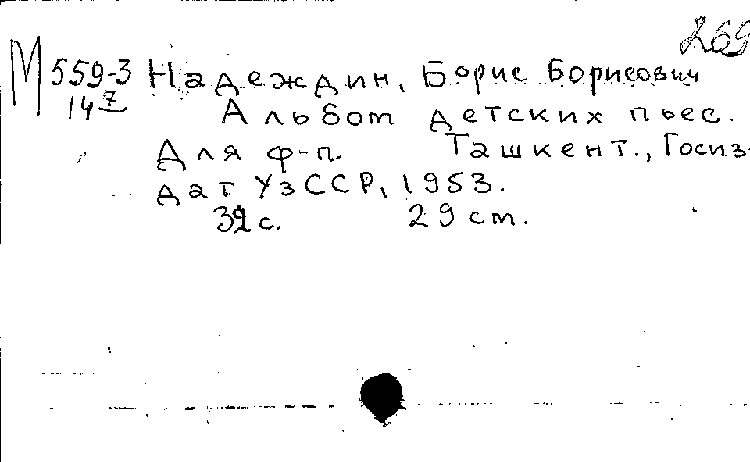 269
М 559-3 Надеждин, Борис Борисович
14 7 Альбом детских пьес.
Для ф-п. Ташкент., Госиз-
дат УзССР, 1953.
32 с. 29 см.